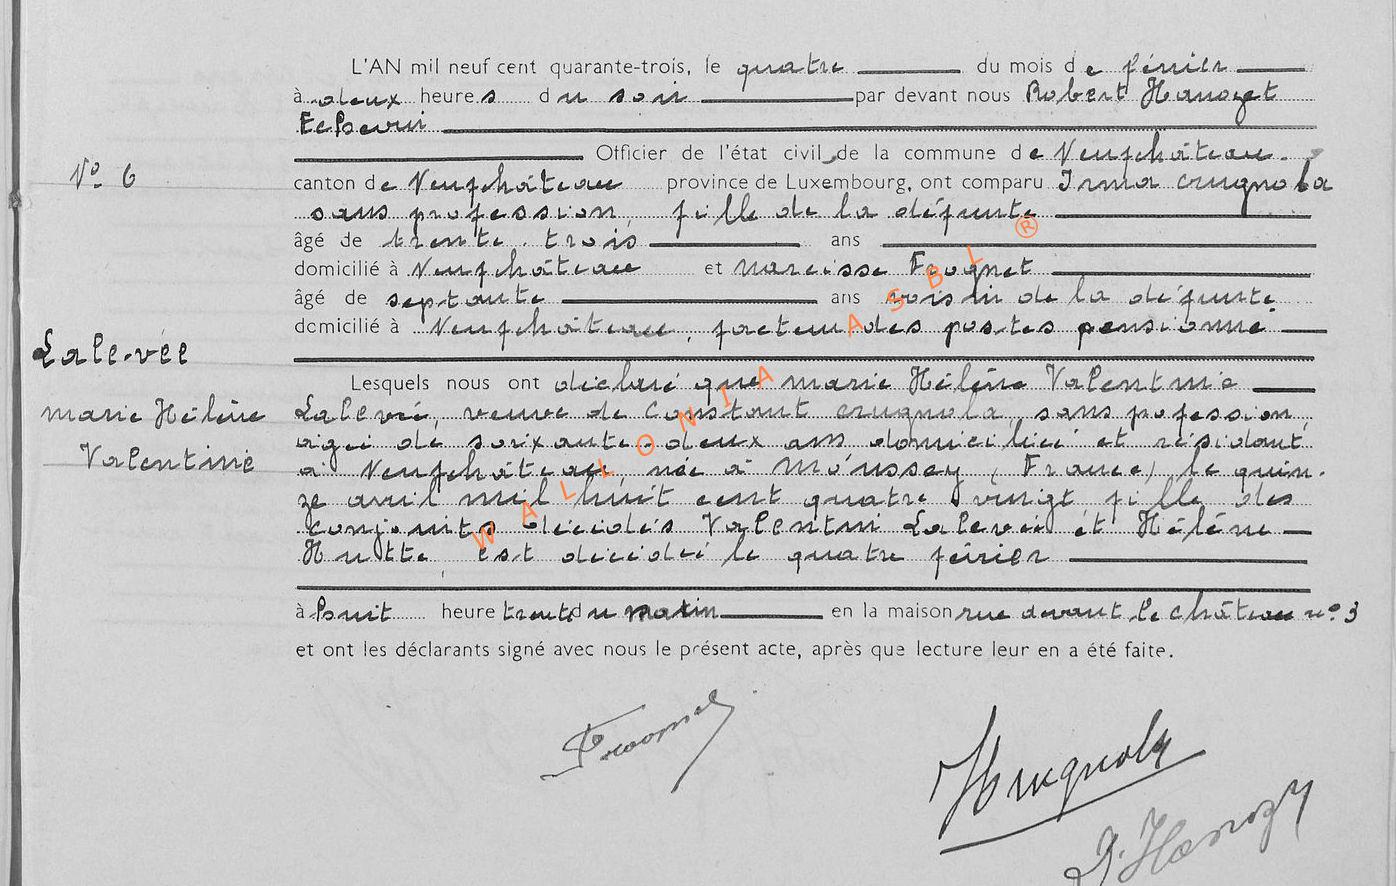 L'AN mil neuf cent quarante-trois, le quatre du mois de février
à deux heures du soir par devant nous Robert Hanozet
Echevin
Officier de l'état civil de la commune de Neufchâteau.
N° 6
canton de Neufchâteau province de Luxembourg, ont comparu Irma Crugnola
sans profession, fille de la défunte
âgé de trente-trois ans
domicilié à Neufchâteau et Narcisse Frognet
âgé de septante ans voisin de la défunte
domicilié à Neufchâteau, facteur des postes pensionné.
Lalevée
Marie Hélène
Valentine
Lesquels nous ont déclaré que Marie Hélène Valentine
Lalevée, veuve de Constant Crugnola, sans profession,
agée de soixante-deux ans domiciliée et résidant
à Neufchâteau née à Moussey (France) le quin-
ze avril mil huit cent quatre vingt fille des
conjoints décédés Valentin Lalevée et Hélène
Hutte, est décédée le quatre février
à huit heure trente du matin en la maison rue devant le château n° 3
et ont les déclarants signé avec nous le présent acte, après que lecture leur en a été faite.
Frognet
ICrugnola
R. Hanozet
WALLONIA ASBL ®